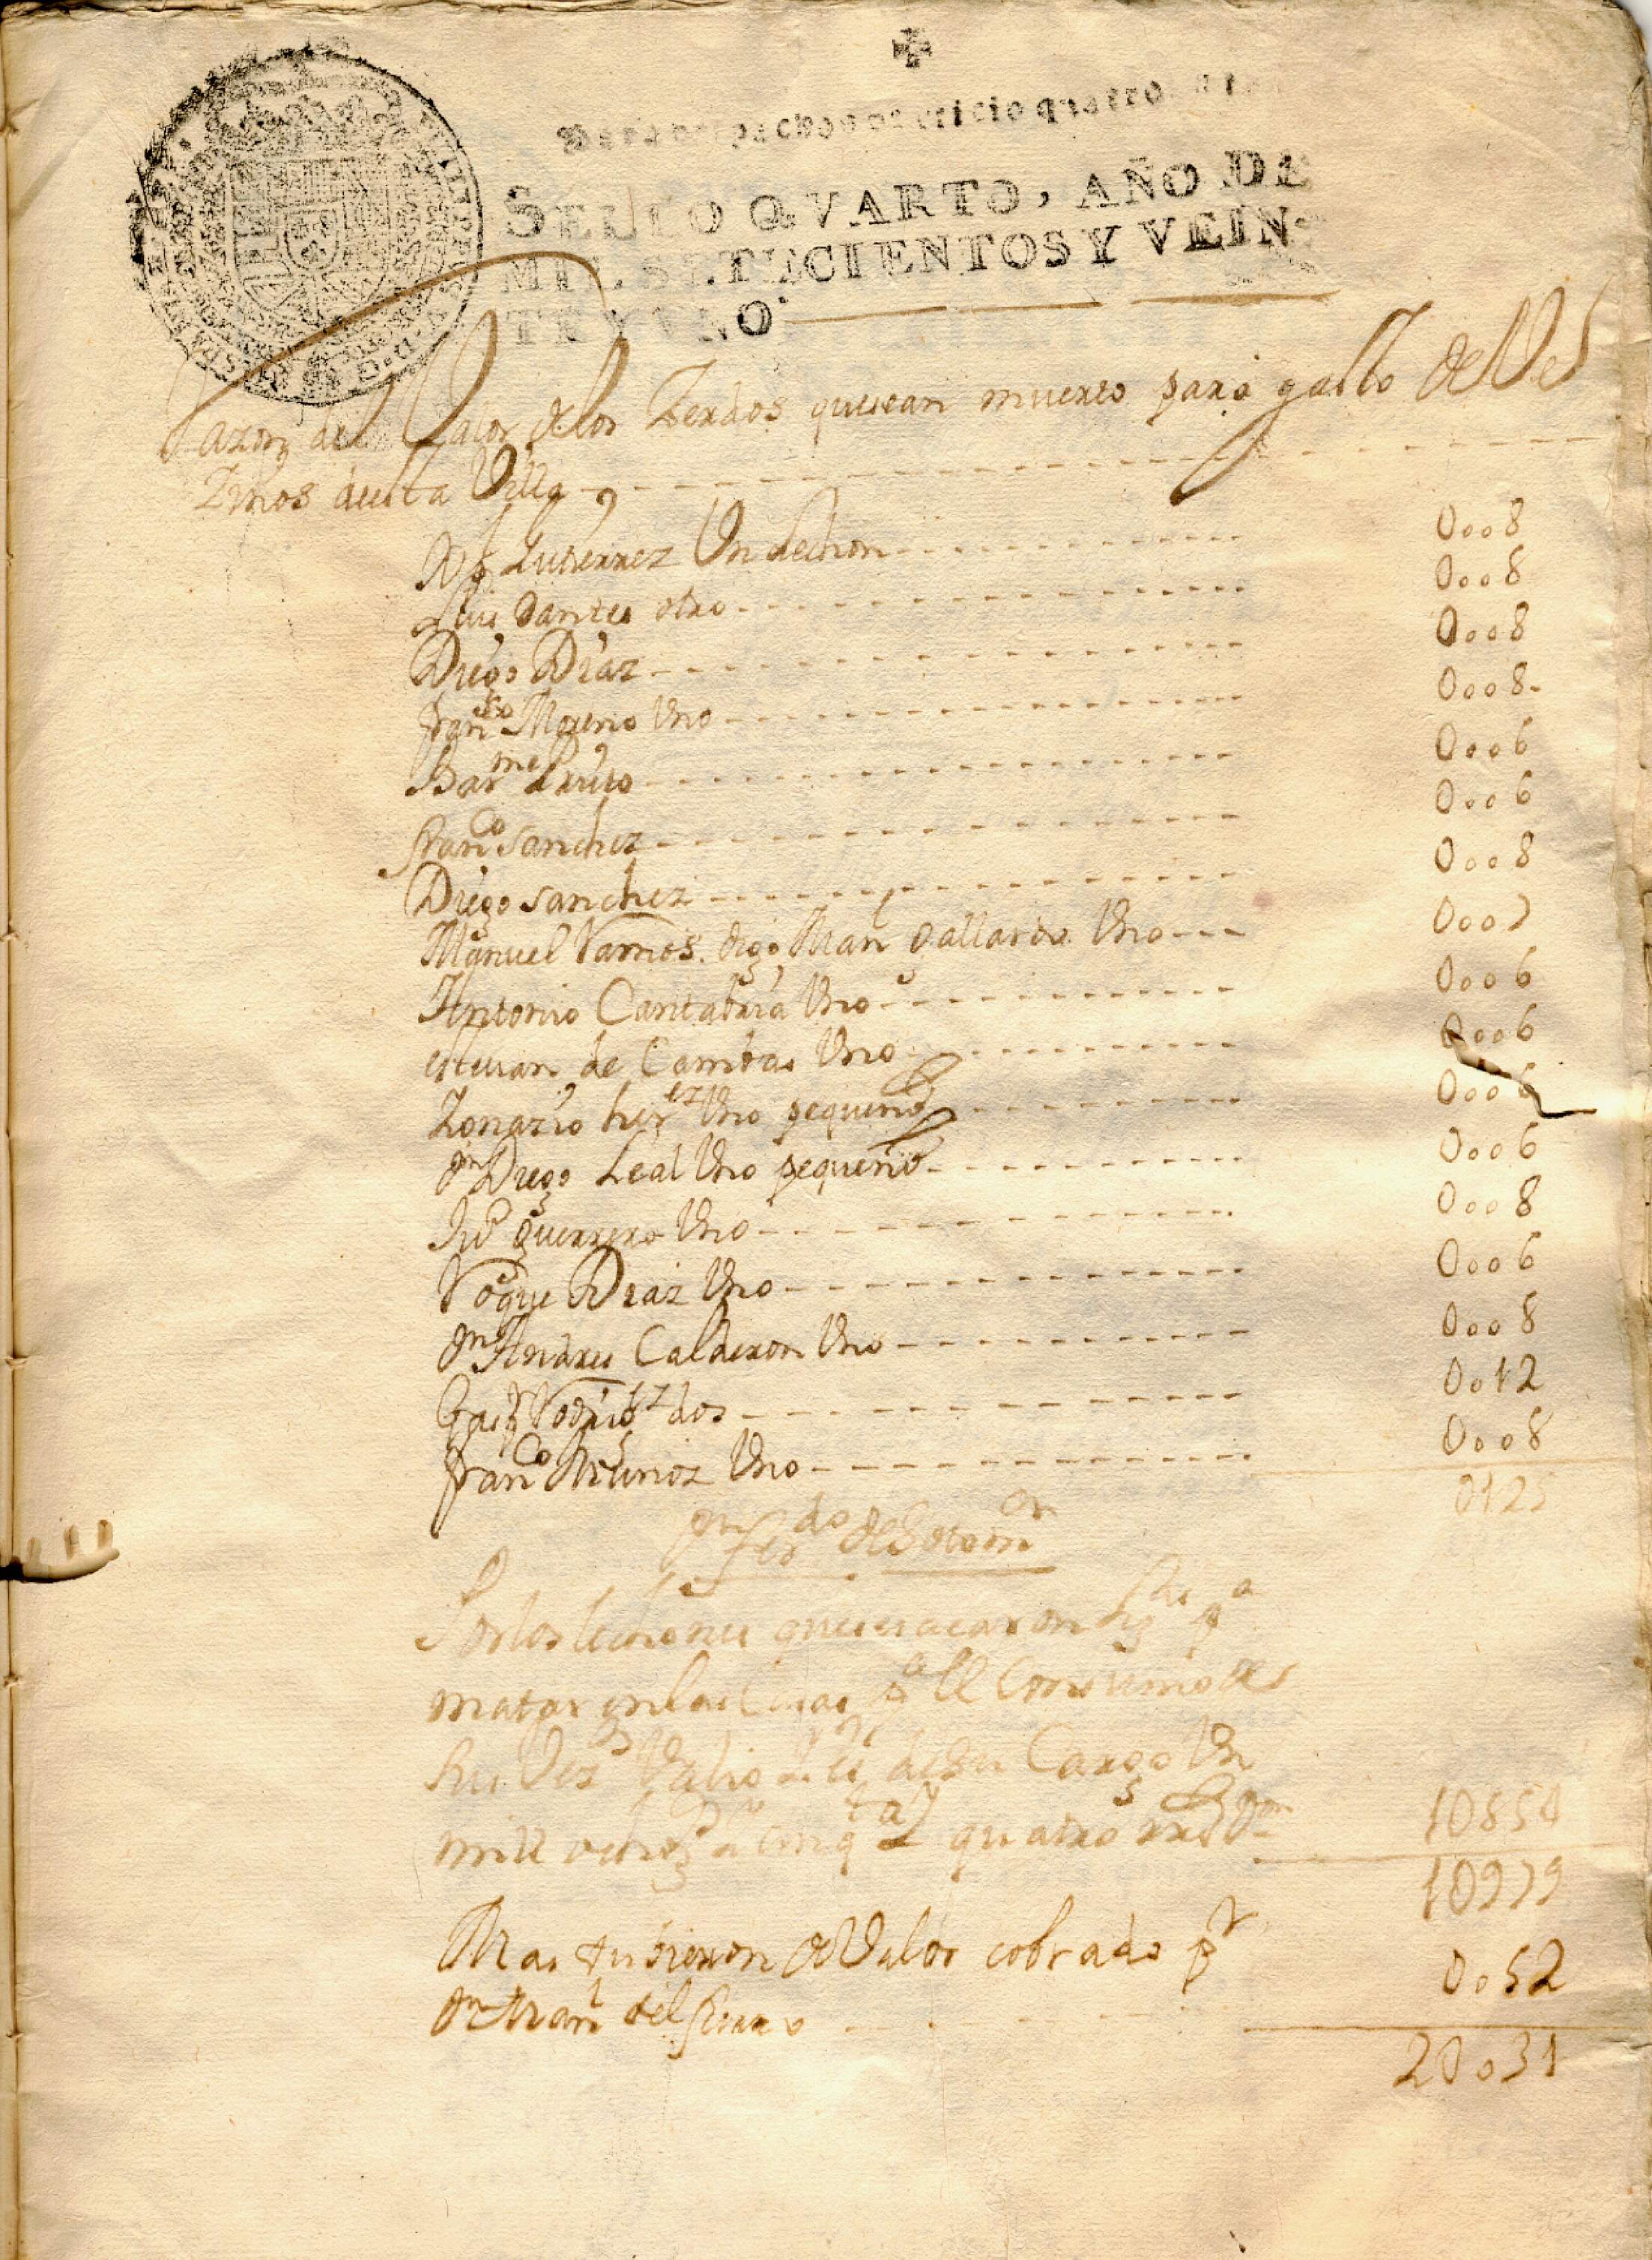 Para despachos de oficio quatro
SELLO QVARTO, AÑO DE
MIL SETECIENTOS Y VEIN-
TE Y VNO.
Razon del Valor de los Zerdos quesean muerto para gasto de Ve
Zinos de esta Villa
Gutierrez Un Lechon 0008
Luis Dantes otro 0008
Diego Diaz 0008
Franco Moreno Uno 0008
Barme 0006
Franco Sanchez 0006
Diego Sanchez 0008
Manuel Ramos. digo Manl Gallardo Uno 0007
Antonio Cantabria Uno 0006
estevan de Cambas Uno 0006
Zonazio herez Uno pequeño 0006
Dn Diego Leal Uno pequeño 0006
Juo Guerrero Uno 0008
Roque Diaz Uno 0006
Dn Andres Calderon Uno 0008
Gasr Rodrigz dos 0012
Franco Munoz Uno 0008
0125
Dn Ferdo de Sotomor
Por los lechones que se sacaron pa
matar en las Casas pa el Consumo de
sus Vezs Valio de su Cargo Un
mill ochoz cinqta y quatro rrs Von 10854
10979
Mas tubieron de Valor cobrado pr
Dn Manl del Pino 0052
20031